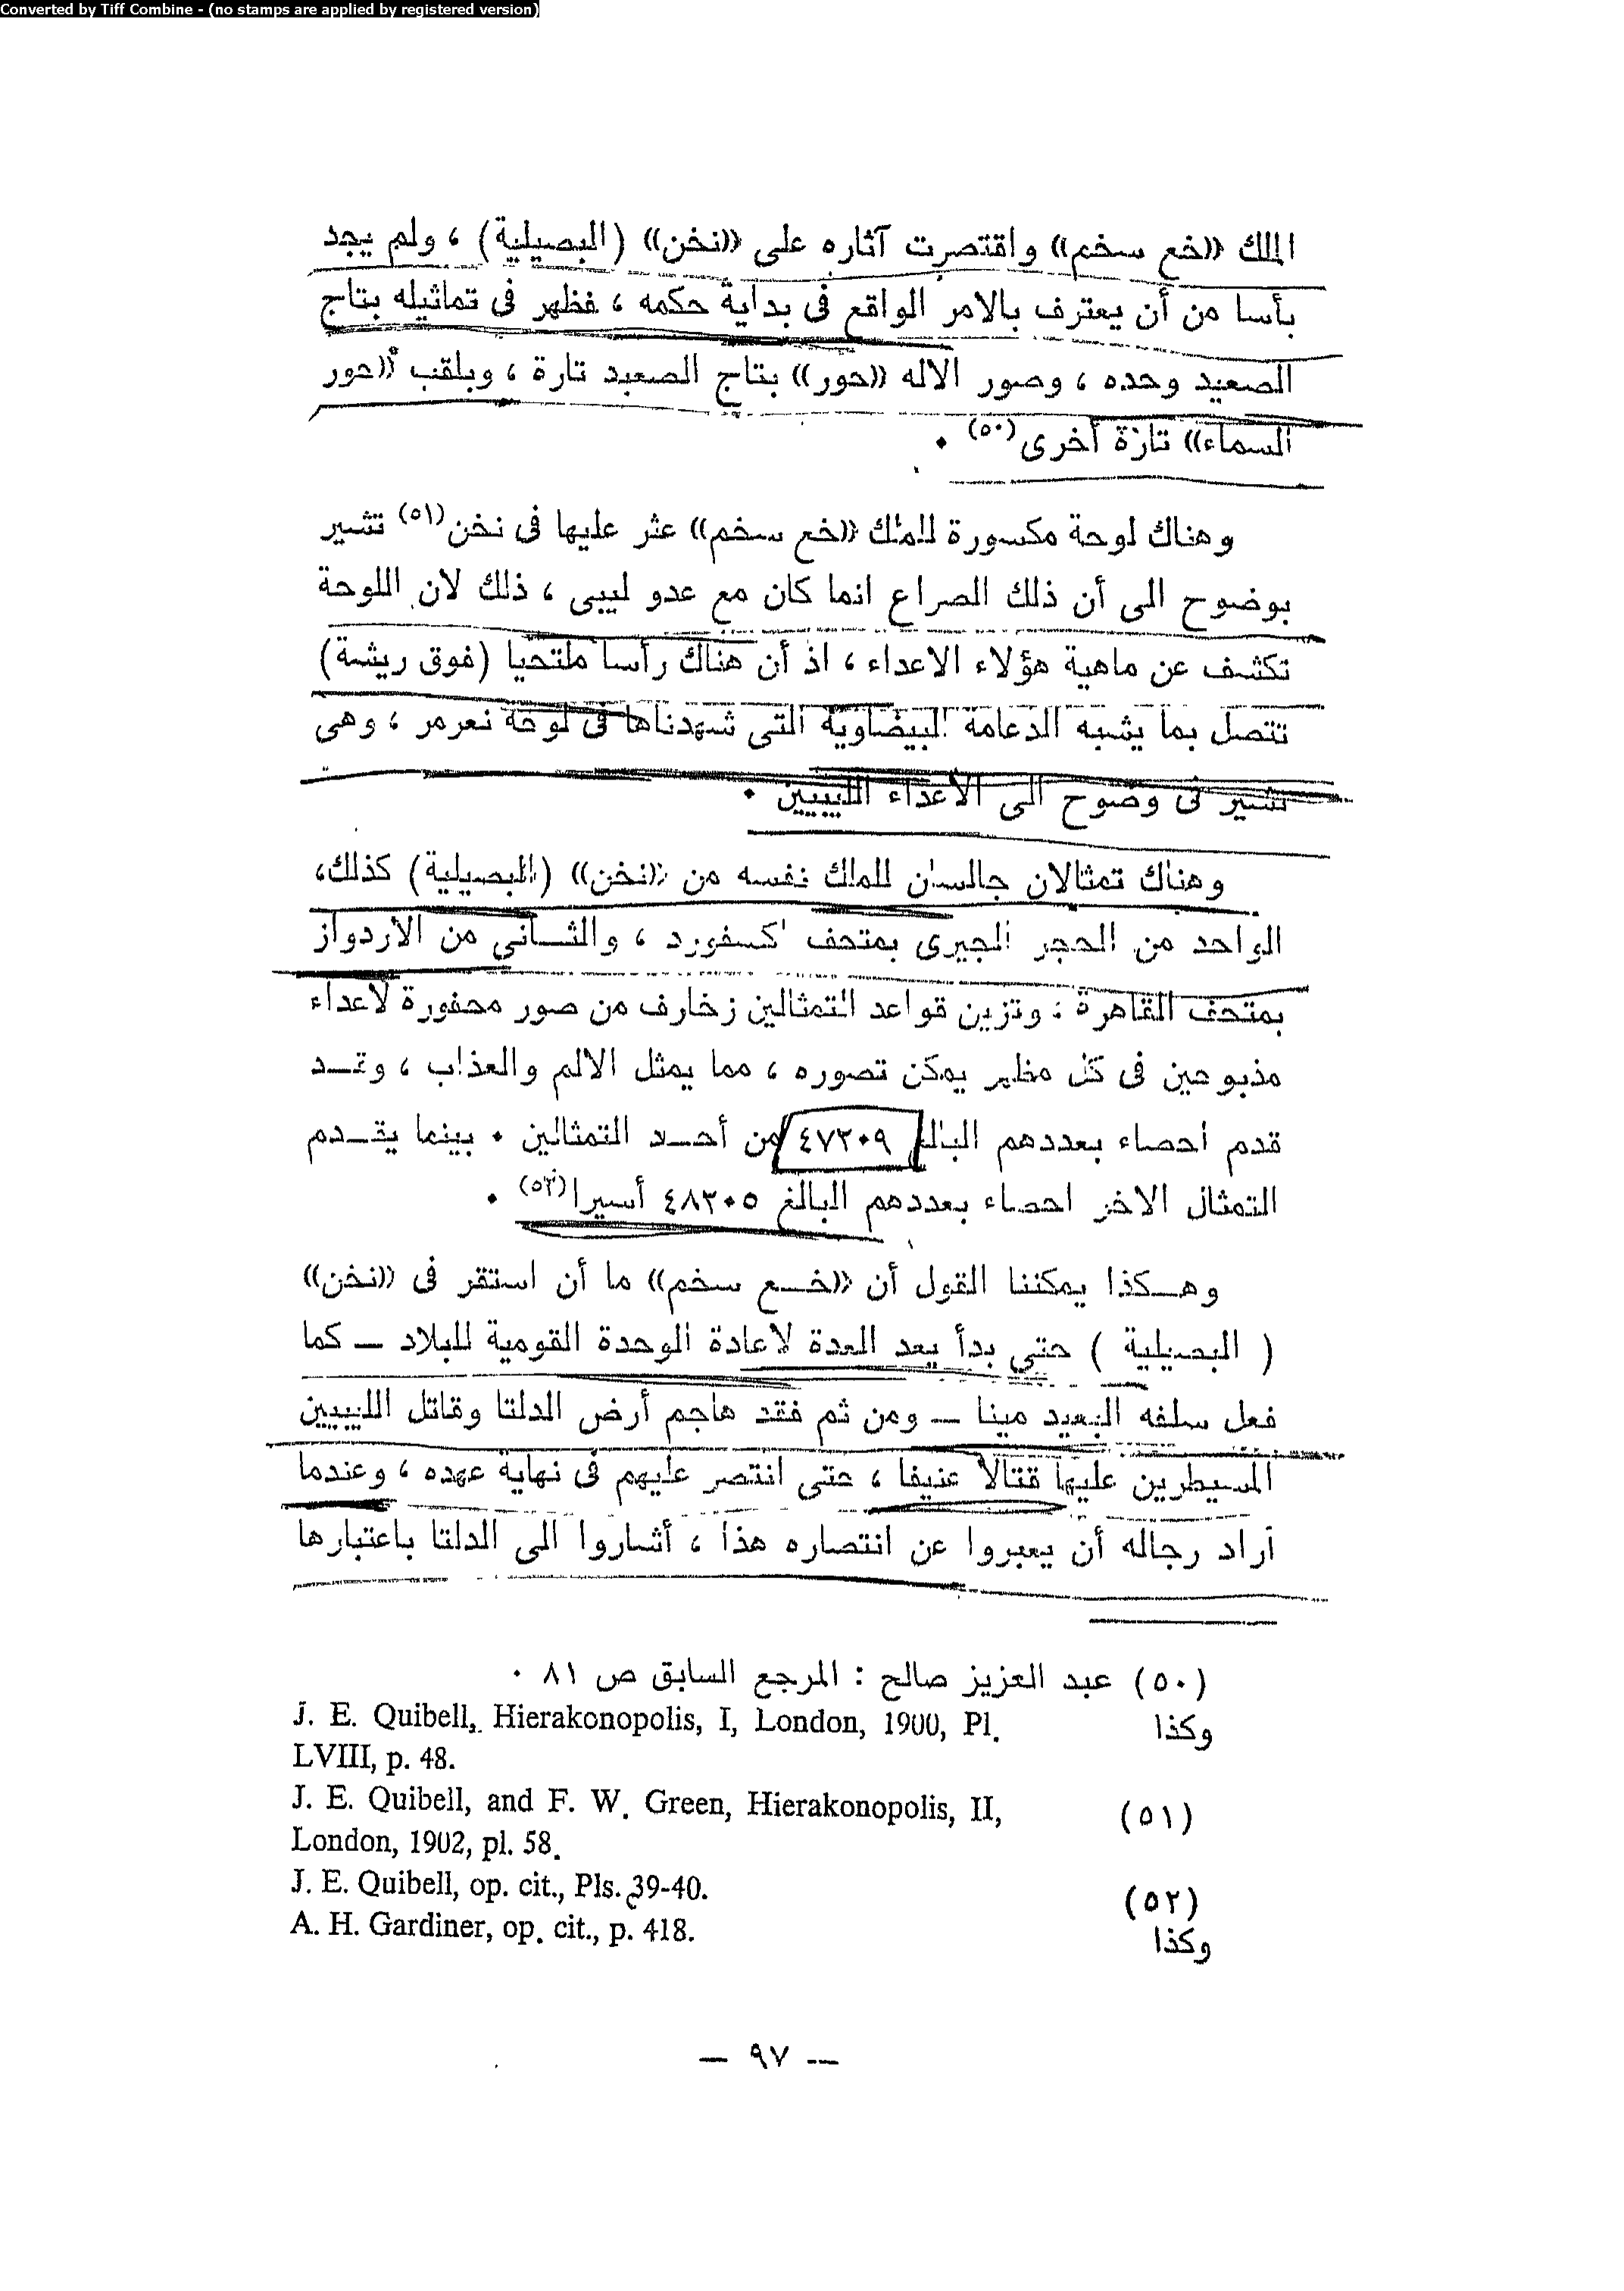 Converted by Tiff Combine - (no stamps are applied by registered version)
الملك «خع سخم» واقتصرت آثاره على «نخن» (البصيلية) ، ولم يجد
بأسا من أن يعترف بالامر الواقع فى بداية حكمه ، فظهر فى تماثيله بتاج
الصعيد وحده ، وصور الاله «حور» بتاج الصعيد تارة ، وبلقب «حور
السماء» تارة أخرى(٥٠) ٠
وهناك لوحة مكسورة للملك «خع سخم» عثر عليها فى نخن(٥١) تشير
بوضوح الى أن ذلك الصراع انما كان مع عدو ليبى ، ذلك لان اللوحة
تكشف عن ماهية هؤلاء الاعداء ، اذ أن هناك رأسا ملتحيا (فوق ريشة)
تتصل بما يشبه الدعامة البيضاوية التى شهدناها فى لوحة نعرمر ، وهى
تشير فى وضوح الى الاعداء الليبيين ٠
وهناك تمثالان جالسان للملك نفسه من «نخن» (البصيلية) كذلك،
الواحد من الحجر الجيرى بمتحف اكسفورد ، والثـــانى من الاردواز
بمتحف القاهرة ، وتزين قواعد التمثالين زخارف من صور محفورة لاعداء
مذبوحين فى كل مظهر يمكن تصوره ، مما يمثل الالم والعذاب ، وقـــد
قدم احصاء بعددهم البالغ ٤٧٢٠٩ من أحـــد التمثالين ٠ بينما يقـــدم
التمثال الاخر احصاء بعددهم البالغ ٤٨٢٠٥ أسيرا(٥٢) ٠
وهــكذا يمكننا القول أن «خـــع سخم» ما أن استقر فى «نخن»
( البصيلية ) حتى بدأ يعد العدة لاعادة الوحدة القومية للبلاد — كما
فعل سلفه البعيد مينا — ومن ثم فقد هاجم أرض الدلتا وقاتل الليبيين
المسيطرين عليها قتالا عنيفا ، حتى انتصر عليهم فى نهاية عهده ، وعندما
أراد رجاله أن يعبروا عن انتصاره هذا ، أشاروا الى الدلتا باعتبارها
(٥٠) عبد العزيز صالح : المرجع السابق ص ٨١ ٠
وكذا J. E. Quibell, Hierakonopolis, I, London, 1900, Pl.
LVIII, p. 48.
(٥١) J. E. Quibell, and F. W. Green, Hierakonopolis, II,
London, 1902, pl. 58.
(٥٢) J. E. Quibell, op. cit., Pls. 39-40.
وكذا A. H. Gardiner, op. cit., p. 418.
— ٩٧ —